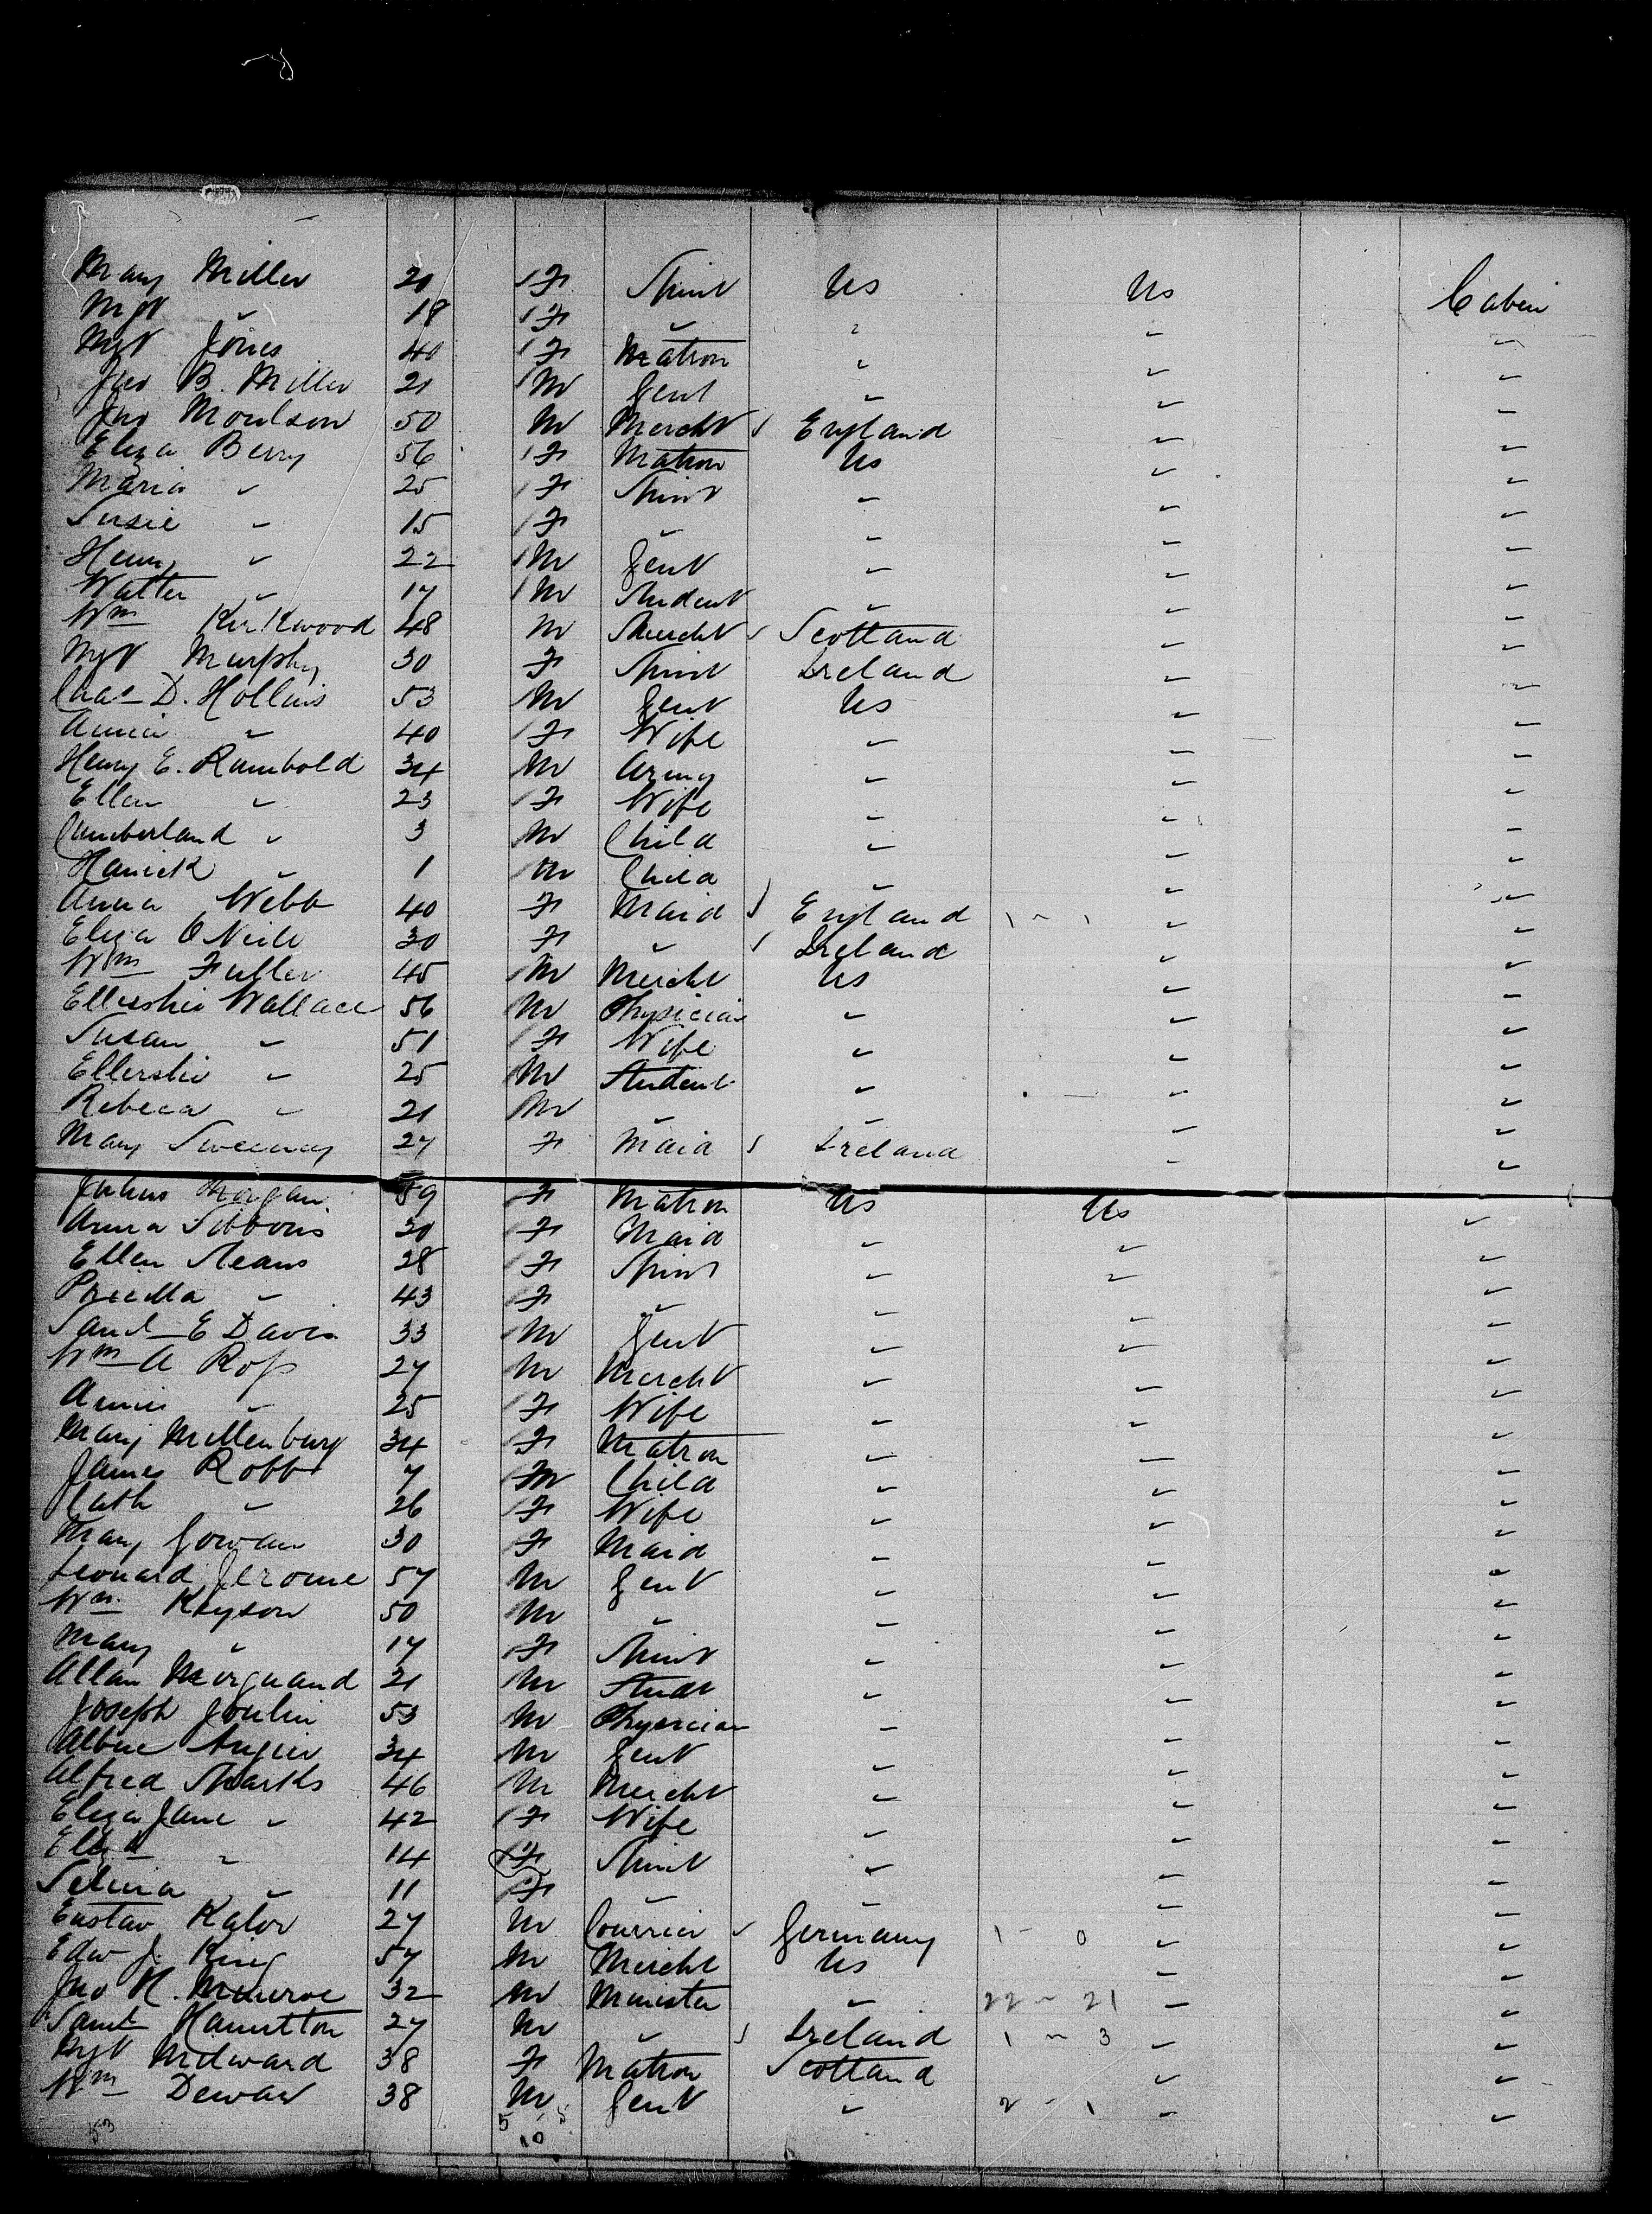 Mary Miller 20 F Spinst Us Us Cabin
Mgt " 18 F " " " "
Mgt Jones 40 F Matron " " "
Jno B. Miller 21 M Gent " " "
Jno Moulson 50 M Mercht England " "
Eliza Berry 56 F Matron Us " "
Maria " 25 F Spinst " " "
Susie " 15 F " " " "
Henry " 22 M Gent " " "
Walter " 17 M Student " " "
Wm Kirkwood 48 M Mercht Scotland " "
Mgt Murphy 30 F Spinst Ireland " "
Chas D. Hollins 53 M Gent Us " "
Annie " 40 F Wife " " "
Henry E. Rumbold 34 M Army " " "
Ellen " 23 F Wife " " "
Cumberland " 3 M Child " " "
" 1 M Child " " "
Anna Webb 40 F Maid England 1 - 1 " "
Eliza O Neile 30 F " Ireland " "
Wm Fuller 45 M Mercht Us " "
Ellerslie Wallace 56 M Physician " " "
Susan " 51 F Wife " " "
Ellerslie " 25 M Student " " "
Rebeca " 21 M " " " "
Mary Sweeney 27 F Maid Ireland " "
Morgan 59 F Matron Us Us "
Anna Gibbons 30 F Maid " " "
Ellen Steans 28 F Spinst " " "
" 43 F " " " "
Saml E Davis 33 M Gent " " "
Wm A Ross 27 M Mercht " " "
Annie " 25 F Wife " " "
Mary Millenburg 34 F Matron " " "
James Robb 7 M Child " " "
Cath " 26 F Wife " " "
Mary Gowan 30 F Maid " " "
Leonard Jerome 57 M Gent " " "
Wm Keyson 50 M " " " "
Mary " 17 F Spinst " " "
Allan Morquand 21 M Studt " " "
Joseph 53 M Physician " " "
Angier 34 M Gent " " "
Alfred Marks 46 M Mercht " " "
Eliza Jane " 42 F Wife " " "
Elizth " 14 F Spinst " " "
Selina " 11 F " " " "
Gustav 27 M Courrier Germany 1 - 0 " "
Edw J. King 57 M Mercht Us " "
Jno H. Munroe 32 M Minister " 22 - 21 " "
Saml Hamilton 27 M " Ireland 1 - 3 " "
Mgt Milward 38 F Matron Scotland " "
Wm Dewar 38 M Gent " 2 - 1 " "
53 5 5
10